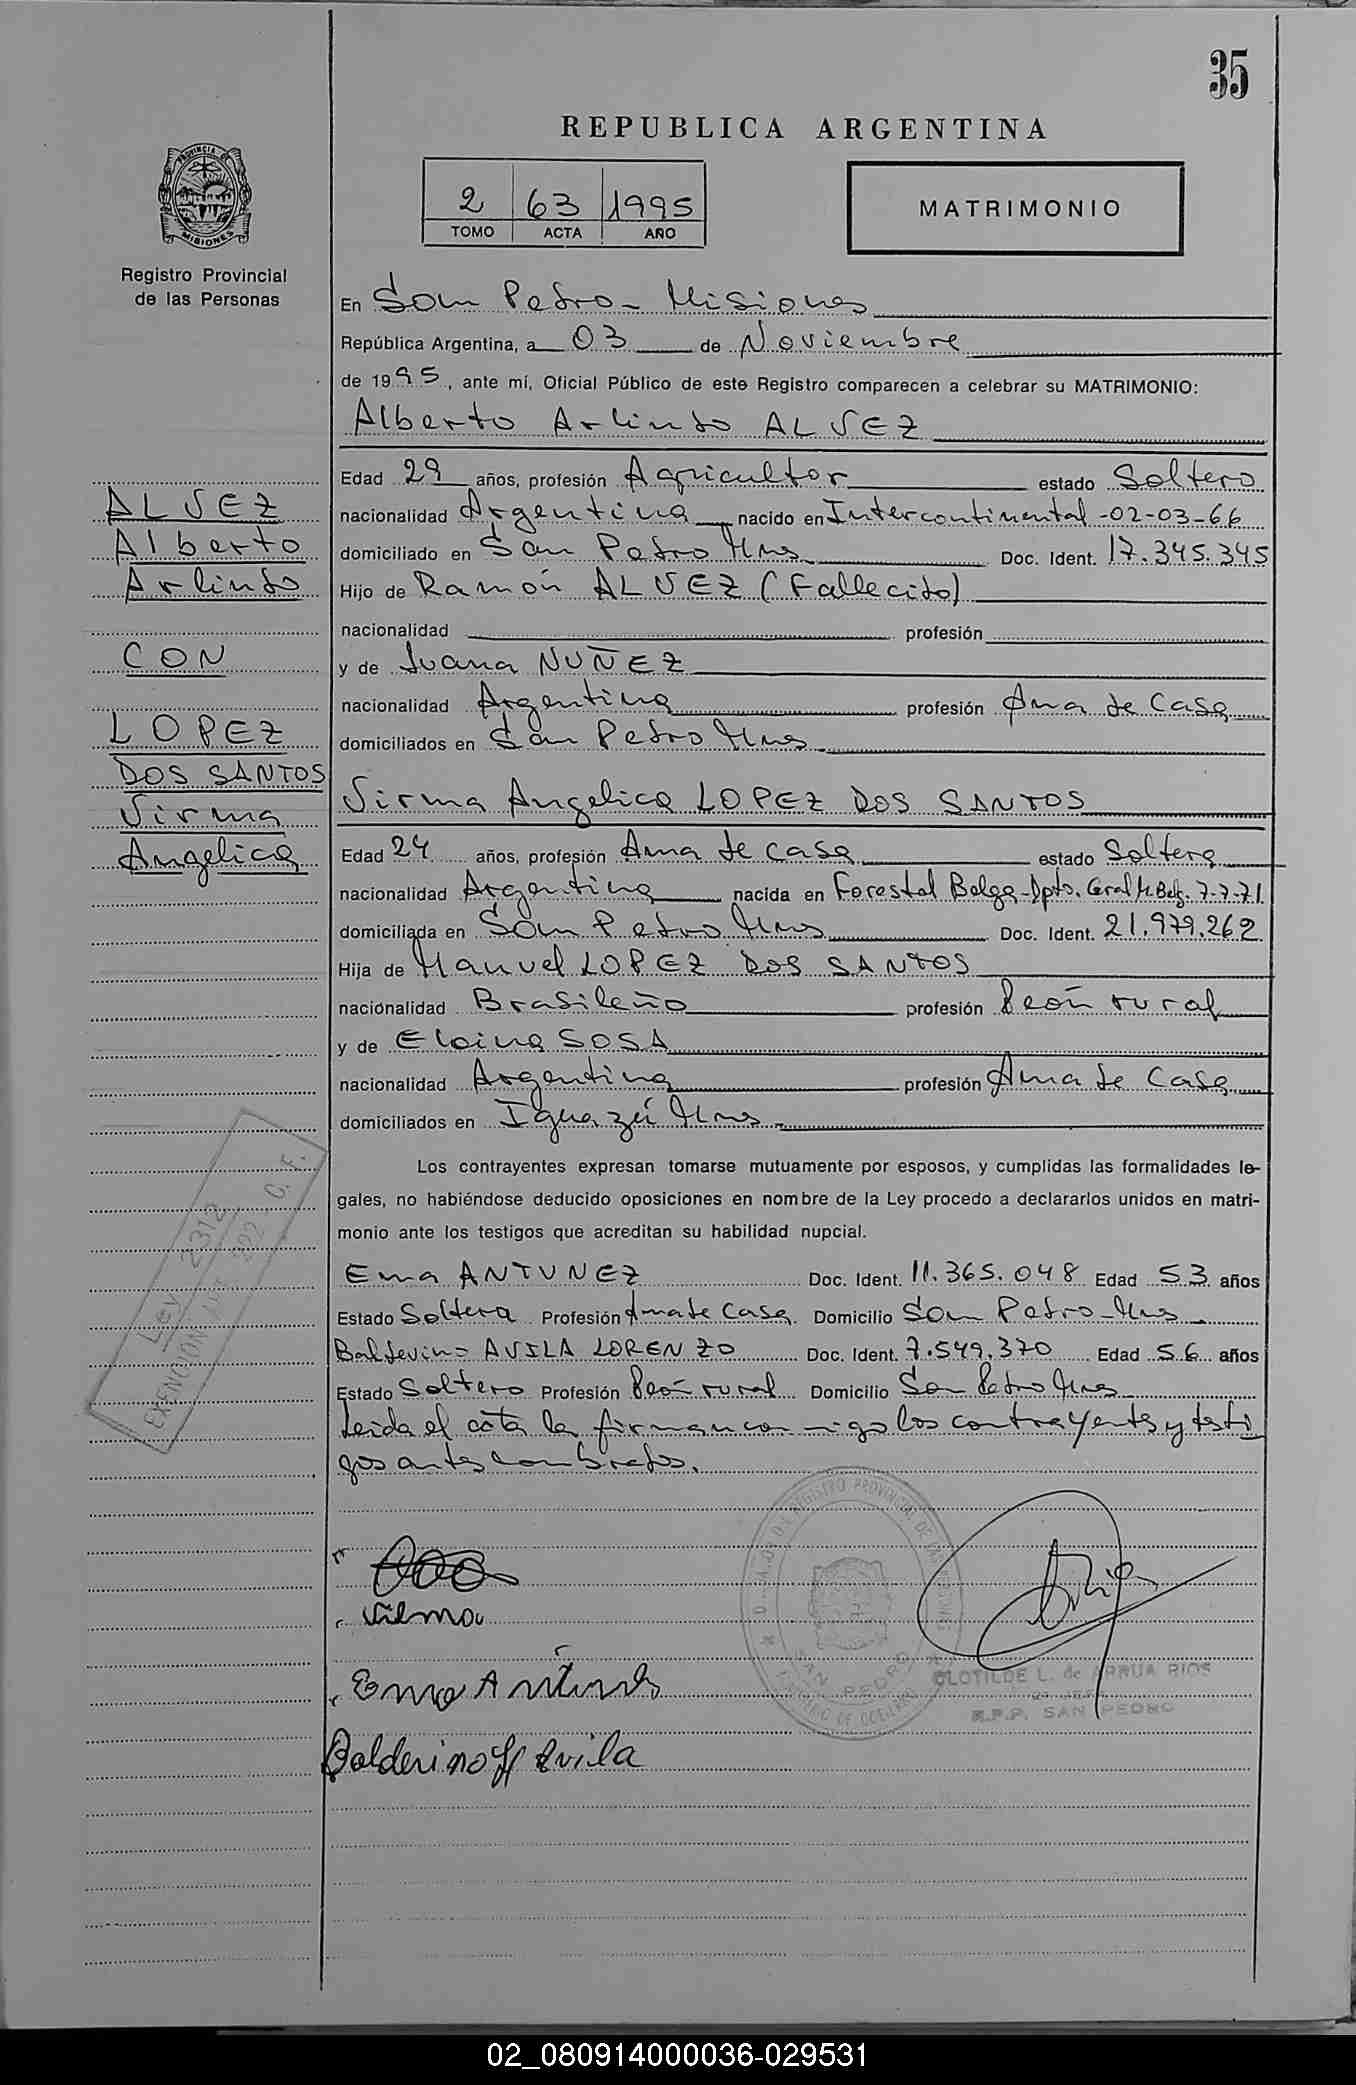 35
REPUBLICA ARGENTINA
2 63 1995
TOMO ACTA AÑO
MATRIMONIO
PROVINCIA DE
MISIONES
Registro Provincial
de las Personas
En San Pedro - Misiones
República Argentina, a 03 de Noviembre
de 1995, ante mí, Oficial Público de este Registro comparecen a celebrar su MATRIMONIO:
Alberto Arlindo ALVEZ
Edad 29 años, profesión Agricultor estado Soltero
nacionalidad Argentina nacido en Intercontinental -02-03-66
domiciliado en San Pedro Mnes Doc. Ident. 17.345.345
Hijo de Ramón ALVEZ (Fallecido)
nacionalidad profesión
y de Juana NUÑEZ
nacionalidad Argentina profesión Ama de Casa
domiciliados en San Pedro Mnes
ALVEZ
Alberto
Arlindo
CON
LOPEZ
DOS SANTOS
Sirma
Angelica
Sirma Angelica LOPEZ DOS SANTOS
Edad 24 años, profesión Ama de casa estado Soltera
nacionalidad Argentina nacida en Forestal Belga-Dpto. Gral M. Belg. 7-7-71
domiciliada en San Pedro Mnes Doc. Ident. 21.979.262
Hija de Manuel LOPEZ DOS SANTOS
nacionalidad Brasileño profesión Peón rural
y de Eloina SOSA
nacionalidad Argentina profesión Ama de Casa
domiciliados en Iguazú Mnes
Los contrayentes expresan tomarse mutuamente por esposos, y cumplidas las formalidades le-
gales, no habiéndose deducido oposiciones en nombre de la Ley procedo a declararlos unidos en matri-
monio ante los testigos que acreditan su habilidad nupcial.
Ema ANTUNEZ Doc. Ident. 11.365.048 Edad 53 años
Estado Soltera Profesión Ama de Casa Domicilio San Pedro-Mnes
Baldevino AVILA LORENZO Doc. Ident. 7.549.370 Edad 56 años
Estado Soltero Profesión Peón rural Domicilio San Pedro Mnes
Leida el acta la firman conmigo los contrayentes y testi
gos antes nombrados.
LEY 2312
EXENCION 322 O. F.
REGISTRO PROVINCIAL DE LAS PERSONAS
SAN PEDRO
Ema Antunes
Balderino Avila
CLOTILDE L. de ARRUA RIOS
R.P.P. SAN PEDRO
02_080914000036-029531